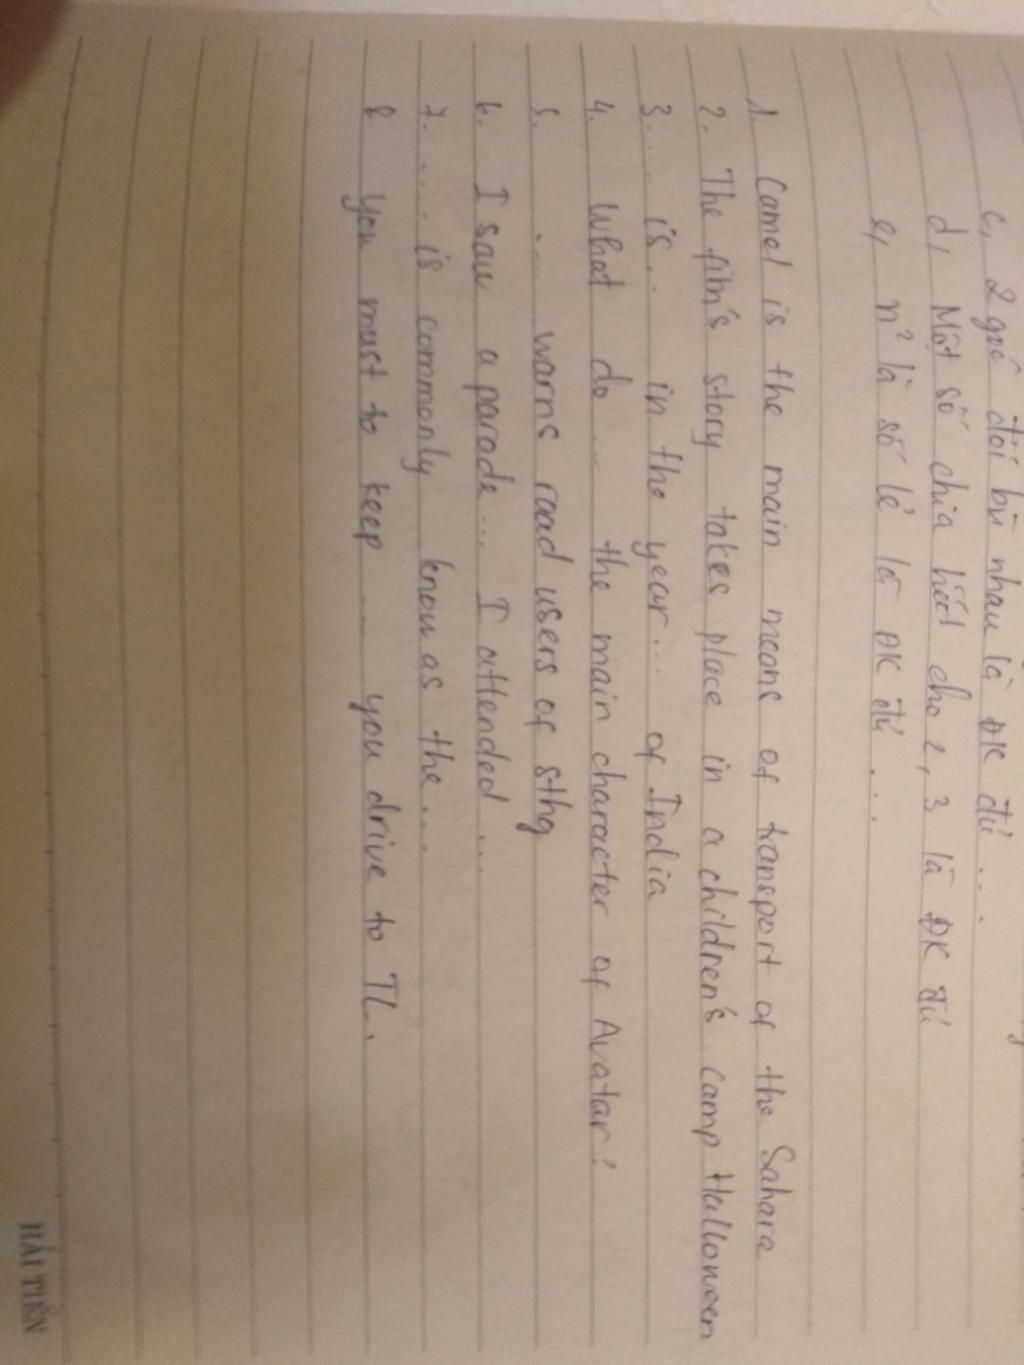 c, 2 góc đối bù nhau là ĐK đủ ...
d, Một số chia hết cho 2, 3 là ĐK đủ
e, n² là số lẻ là ĐK đủ ...
1 Camel is the main means of transport of the Sahara
2. The film's story takes place in a children's camp Halloween
3.... is.. in the year... of India
4. What do... the main character of Avatar?
5. .... warns road users of sthg
6. I saw a parade... I attended ...
7. ... is commonly know as the...
8 you must to keep ... you drive to TL.
HẢI TIẾN